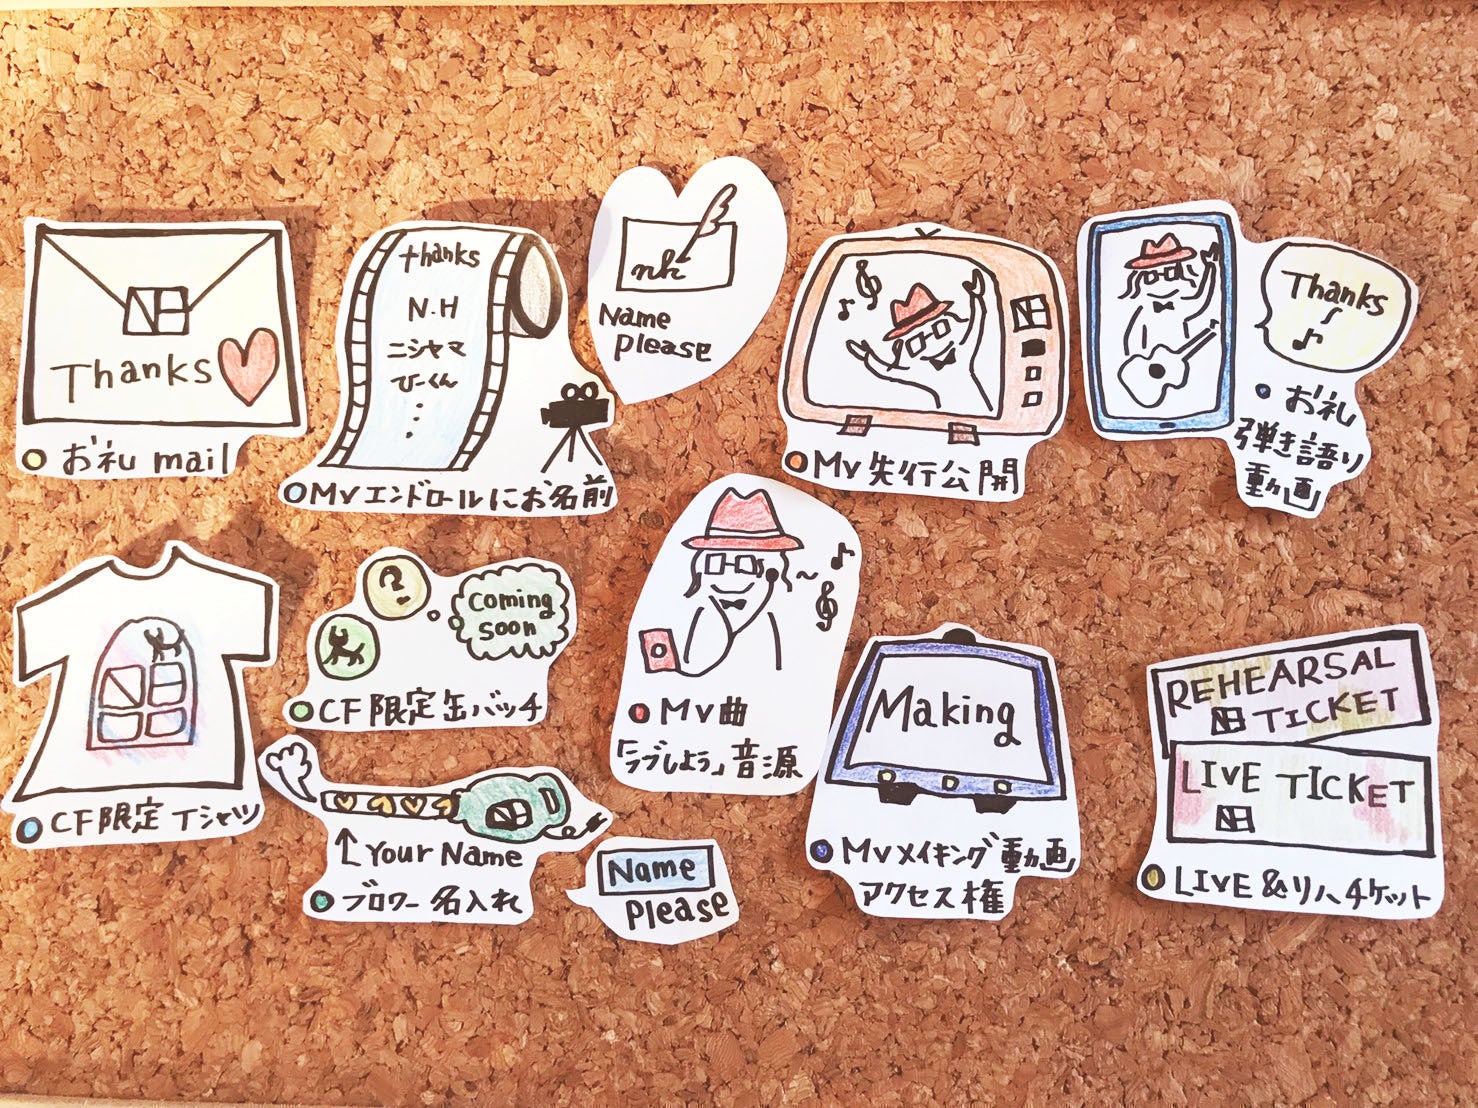 Thanks
お礼 mail
thanks
N.H
ニシヤマ
ひーくん
MVエンドロールにお名前
nh
Name
please
MV先行公開
Thanks
お礼
弾き語り
動画
CF限定Tシャツ
?
Coming
soon
CF限定缶バッチ
Your Name
ブロワー名入れ
Name
please
MV曲
「ラブしよう」音源
Making
MVメイキング動画
アクセス権
REHEARSAL
NB TICKET
LIVE TICKET
NB
LIVE&リハチケット